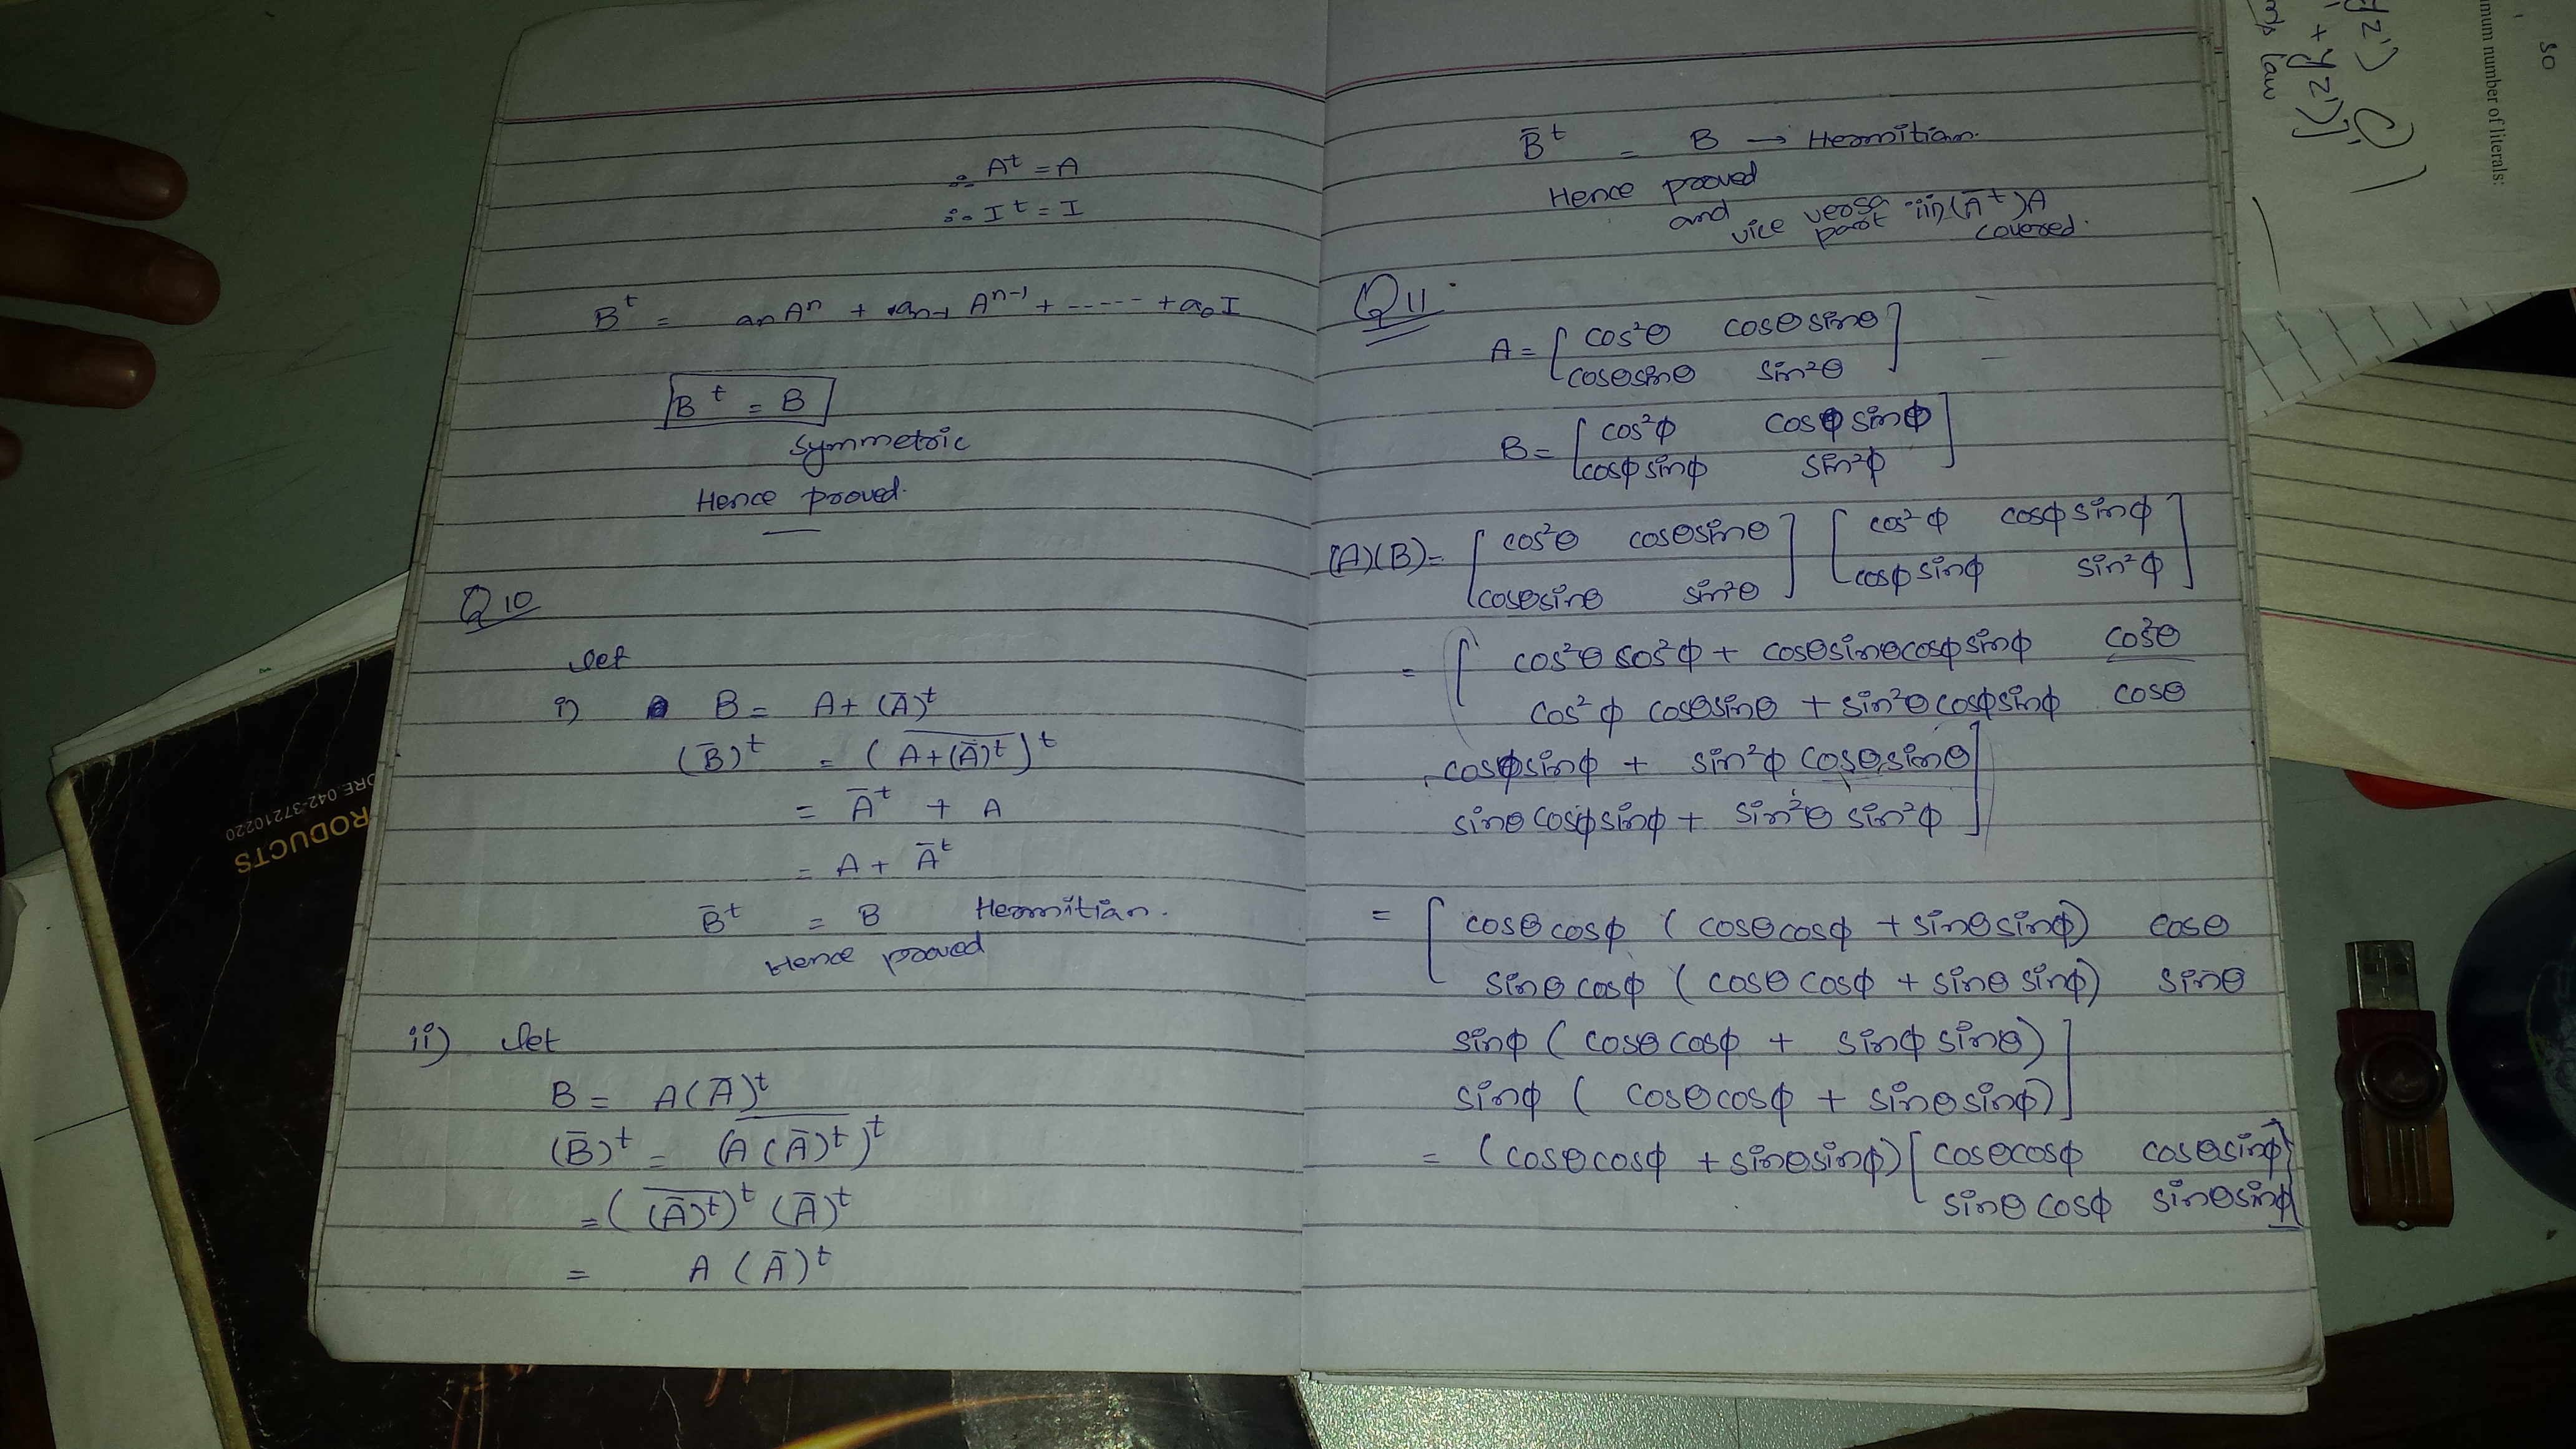 ∴ A^t = A
∴ I^t = I
B^t = anA^n + an-1 A^n-1 + ------ + a₀I
B^t = B
symmetric
Hence proved.
Q10
Let
i) B = A + (Ā)^t
(B̅)^t = (\overline{A+(Ā)^t})^t
= Ā^t + A
= A + Ā^t
B̅^t = B Hermitian.
Hence proved
ii) Let
B = A(Ā)^t
(B̅)^t = (\overline{A(Ā)^t})^t
= (\overline{(Ā)^t})^t (Ā)^t
= A (Ā)^t
B̅^t = B → Hermitian.
Hence proved
and vice versa part iii) (Ā^t)A covered.
Q11
A = [cos²θ cosθsinθ
cosθsinθ sin²θ]
B = [cos²φ cosφ sinφ
cosφ sinφ sin²φ]
(A)(B) = [cos²θ cosθsinθ] [cos²φ cosφ sinφ]
[cosθsinθ sin²θ] [cosφ sinφ sin²φ]
= [cos²θ cos²φ + cosθsinθcosφsinφ cos²θ
cos²φ cosθsinθ + sin²θcosφsinφ cosθ
cosφsinφ + sin²φ cosθsinθ]
sinθ cosφsinφ + sin²θ sin²φ]
= [cosθcosφ (cosθcosφ + sinθsinφ) cosθ
sinθcosφ (cosθcosφ + sinθsinφ) sinθ
sinφ (cosθcosφ + sinφsinθ)]
sinφ (cosθcosφ + sinθsinφ)]
= (cosθcosφ + sinθsinφ) [cosθcosφ cosθsinφ
sinθcosφ sinθsinφ]
ORE.042-37210220
RODUCTS
so
mum number of literals:
yz')
+ yz')]
law